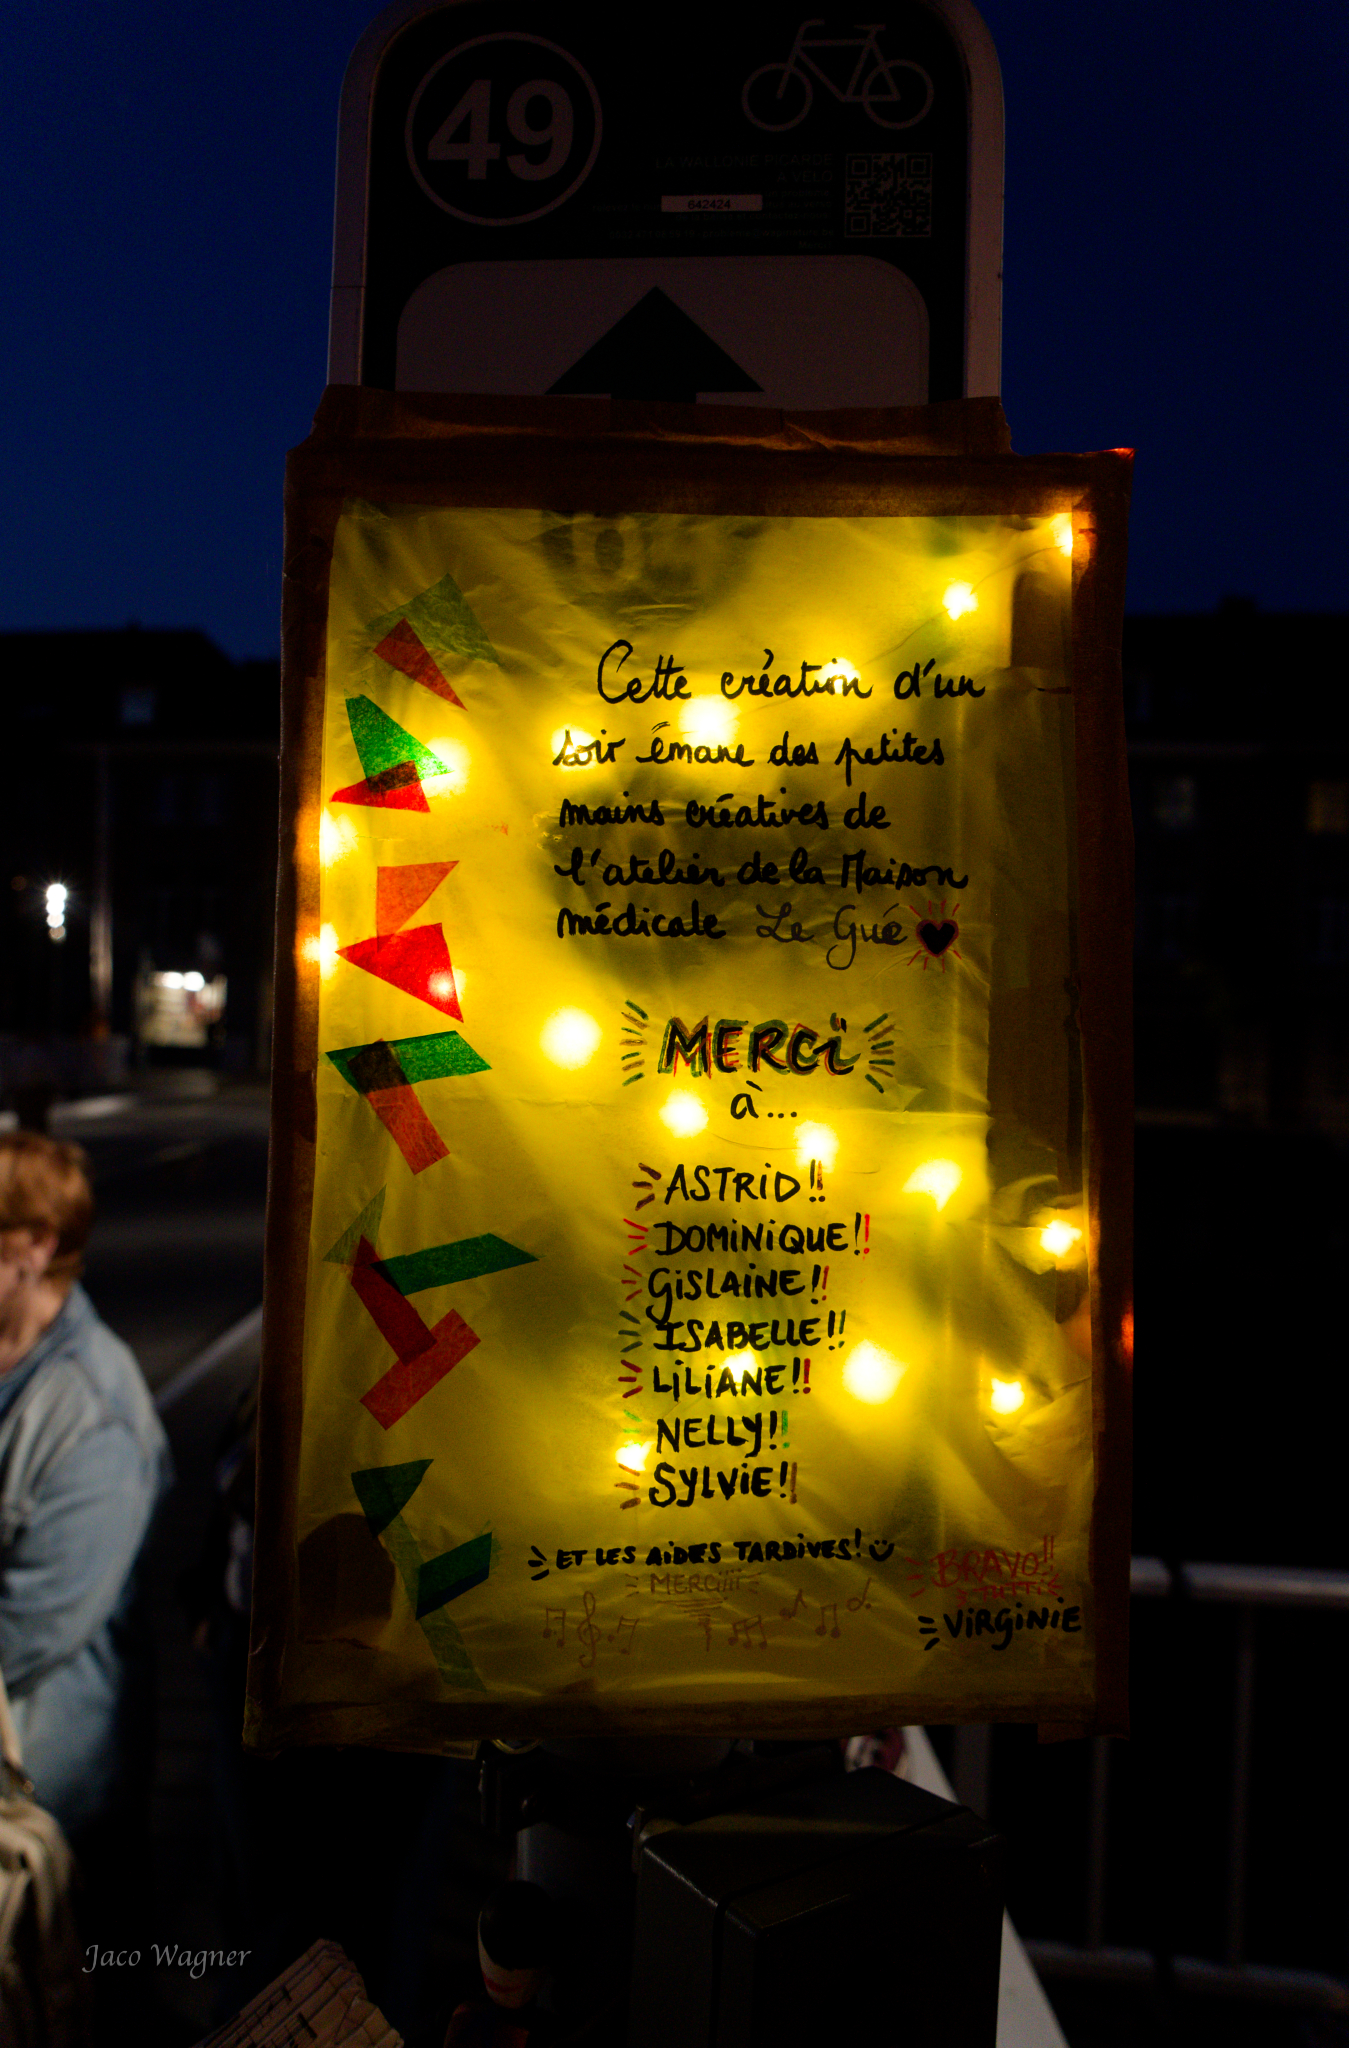 49
LA WALLONIE PICARDE
À VÉLO
642424
Cette création d'un
soir émane des petites
mains créatives de
l'atelier de la Maison
médicale Le Gué
MERCi
à...
ASTRiD!!
DOMiNiQUE!!
GiSLAiNE!!
ISABELLE!!
LiLiANE!!
NELLY!!
SYLViE!!
ET LES AiDES TARDiVES!
MERCiiii
BRAVO!!
TUTTi
ViRGiNiE
Jaco Wagner